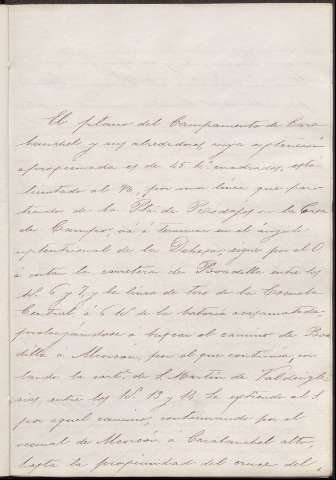 El plano del Campamento de Cara-
banchel y sus alrededores cuya extension
aproximada es de 45 k. cuadrados, está
limitado al N, por una línea que par-
tiendo de la Pta. de Rodajos en la Casa
de Campo, va á terminar en el ángulo
septentrional de la Dehesa; sigue por el O
á cortar la carretera de Boadilla entre los
K. 6 y 7, y la línea de tiro de la Escuela
Central á 6 K de la batería acasamatada
prolongándose á buscar el camino de Boa-
dilla á Alcorcón, por el que continua, cor-
tando la carta. de S. Martin de Valdeigle-
sias, entre los K. 13 y 14. Se extiende al S
por aquel camino, continuando por el
vecinal de Alcorcón á Carabanchel alto,
hasta la proximidad del cruce del